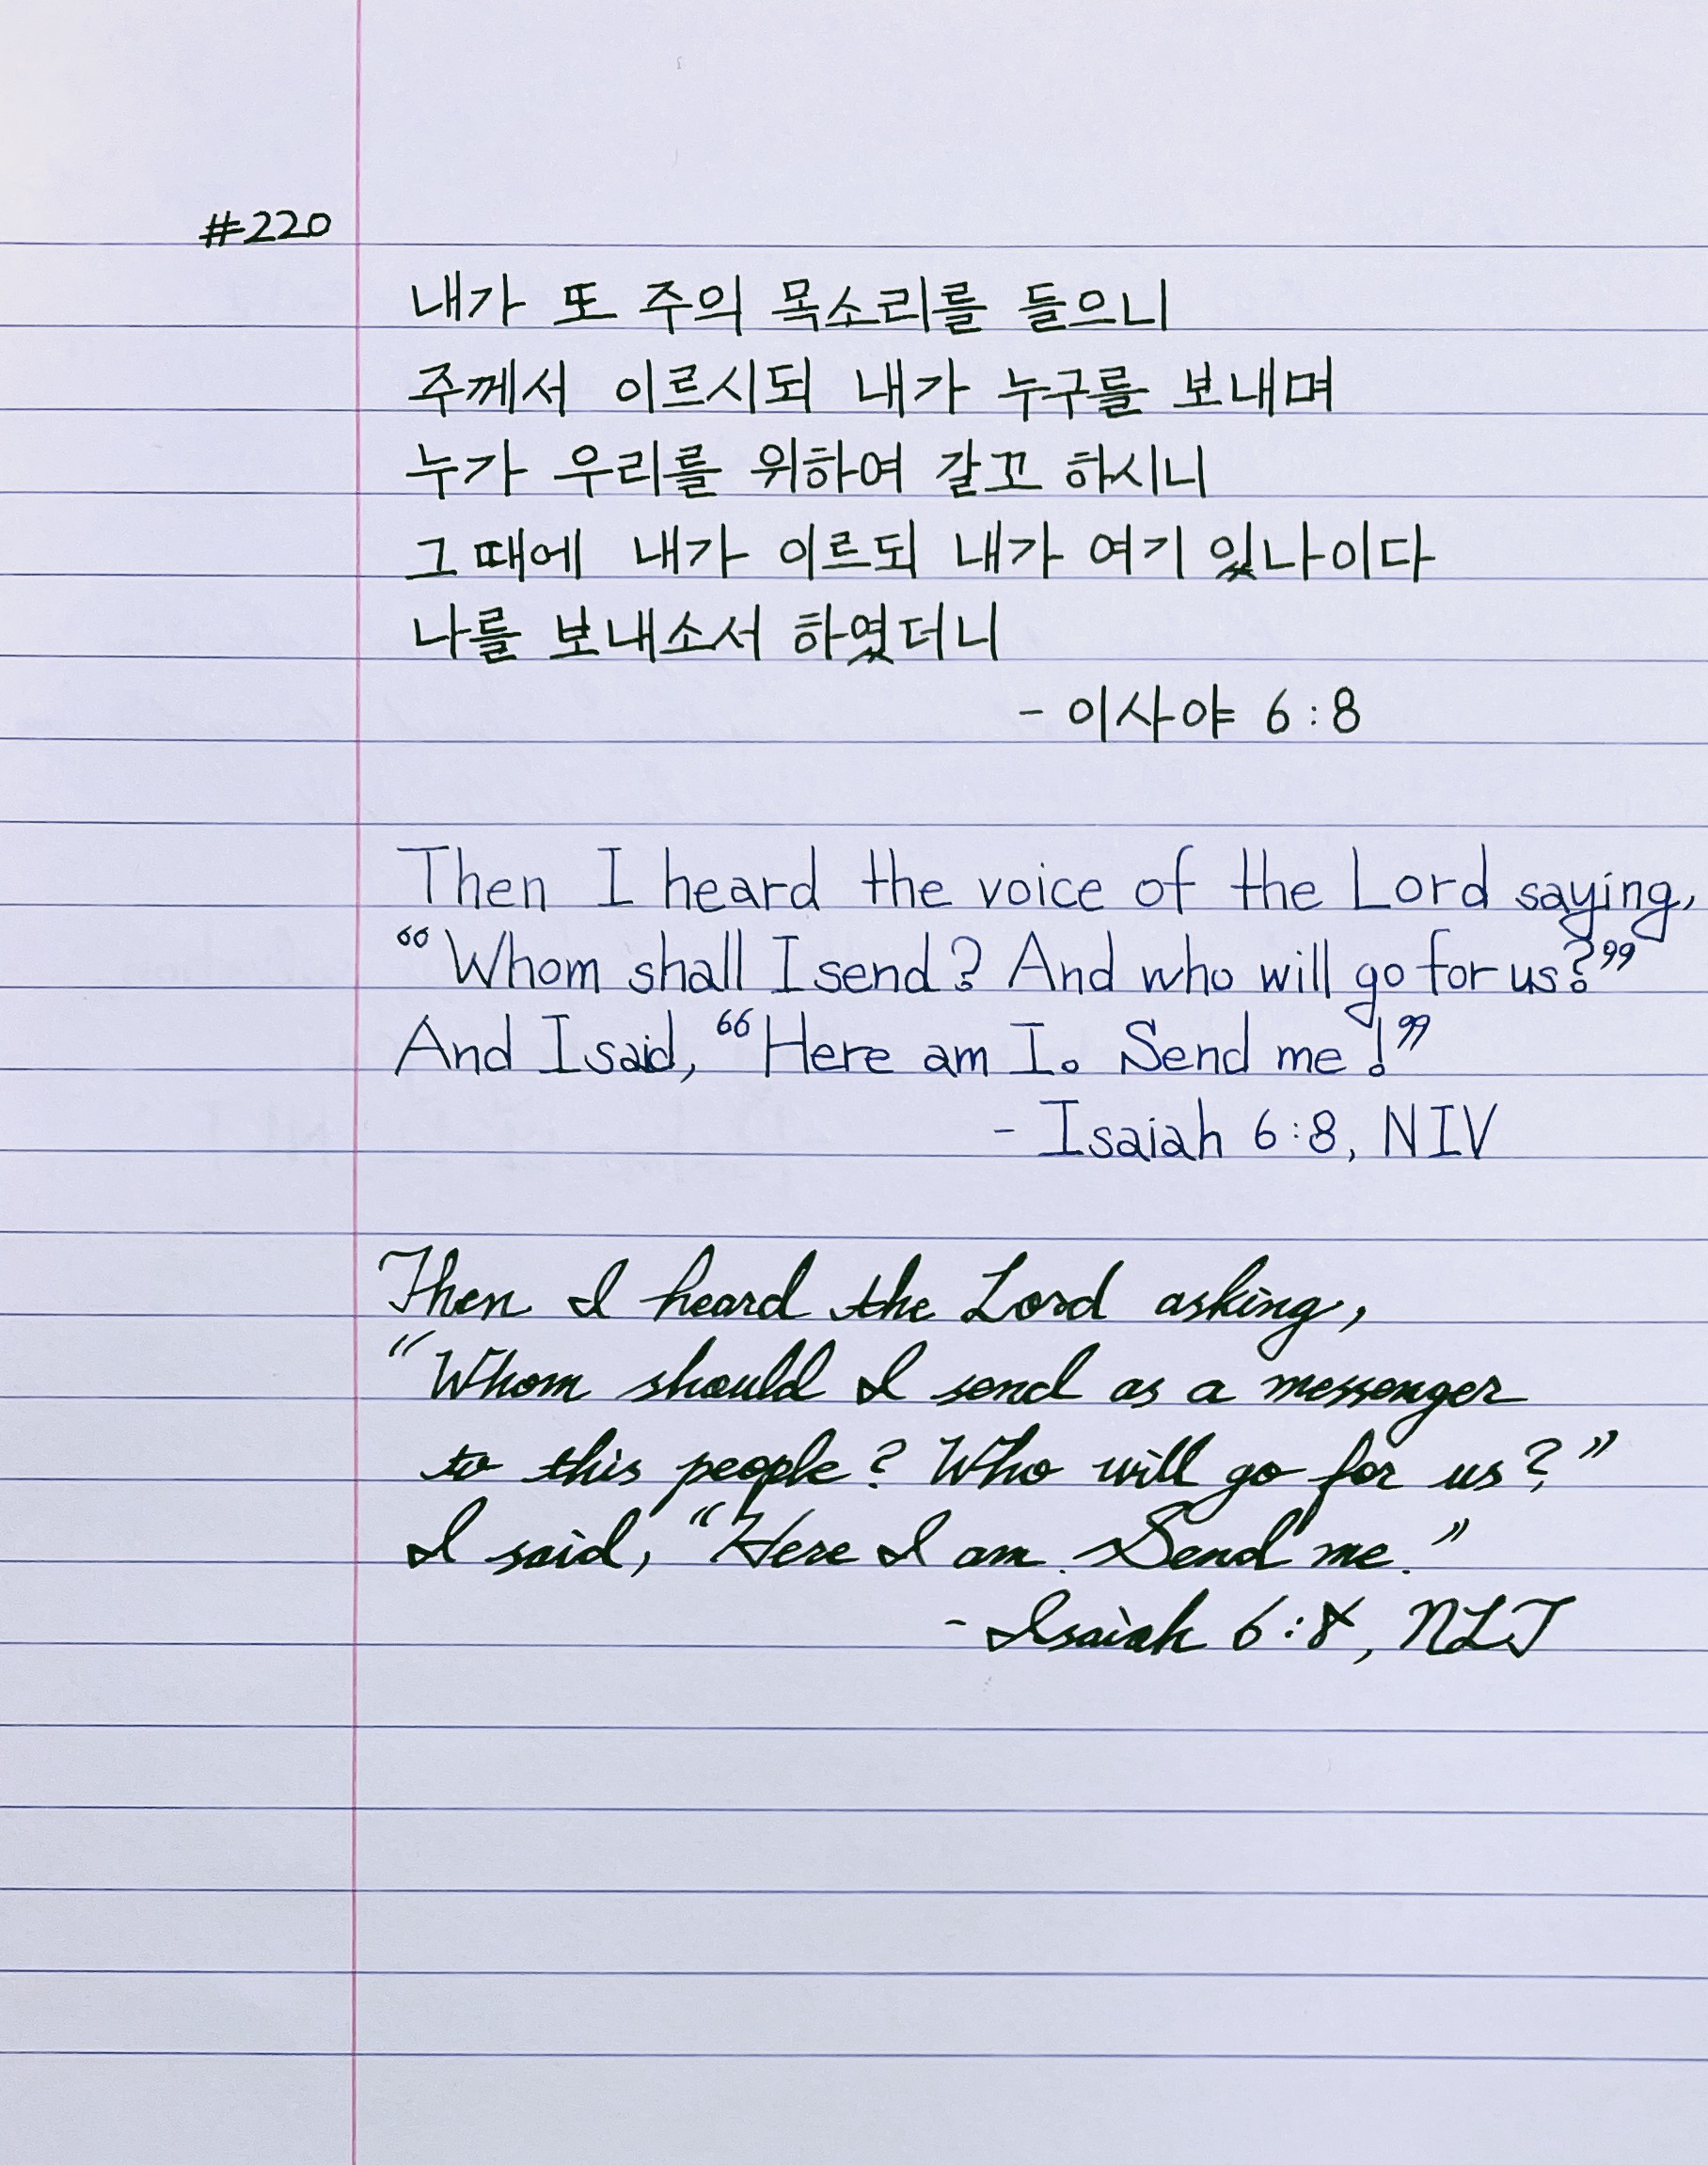 #220
내가 또 주의 목소리를 들으니
주께서 이르시되 내가 누구를 보내며
누가 우리를 위하여 갈꼬 하시니
그 때에 내가 이르되 내가 여기 있나이다
나를 보내소서 하였더니
- 이사야 6:8
Then I heard the voice of the Lord saying,
“Whom shall I send? And who will go for us?”
And I said, “Here am I. Send me!”
- Isaiah 6:8, NIV
Then I heard the Lord asking,
“Whom should I send as a messenger
to this people? Who will go for us?”
I said, “Here I am. Send me.”
- Isaiah 6:8, NLT